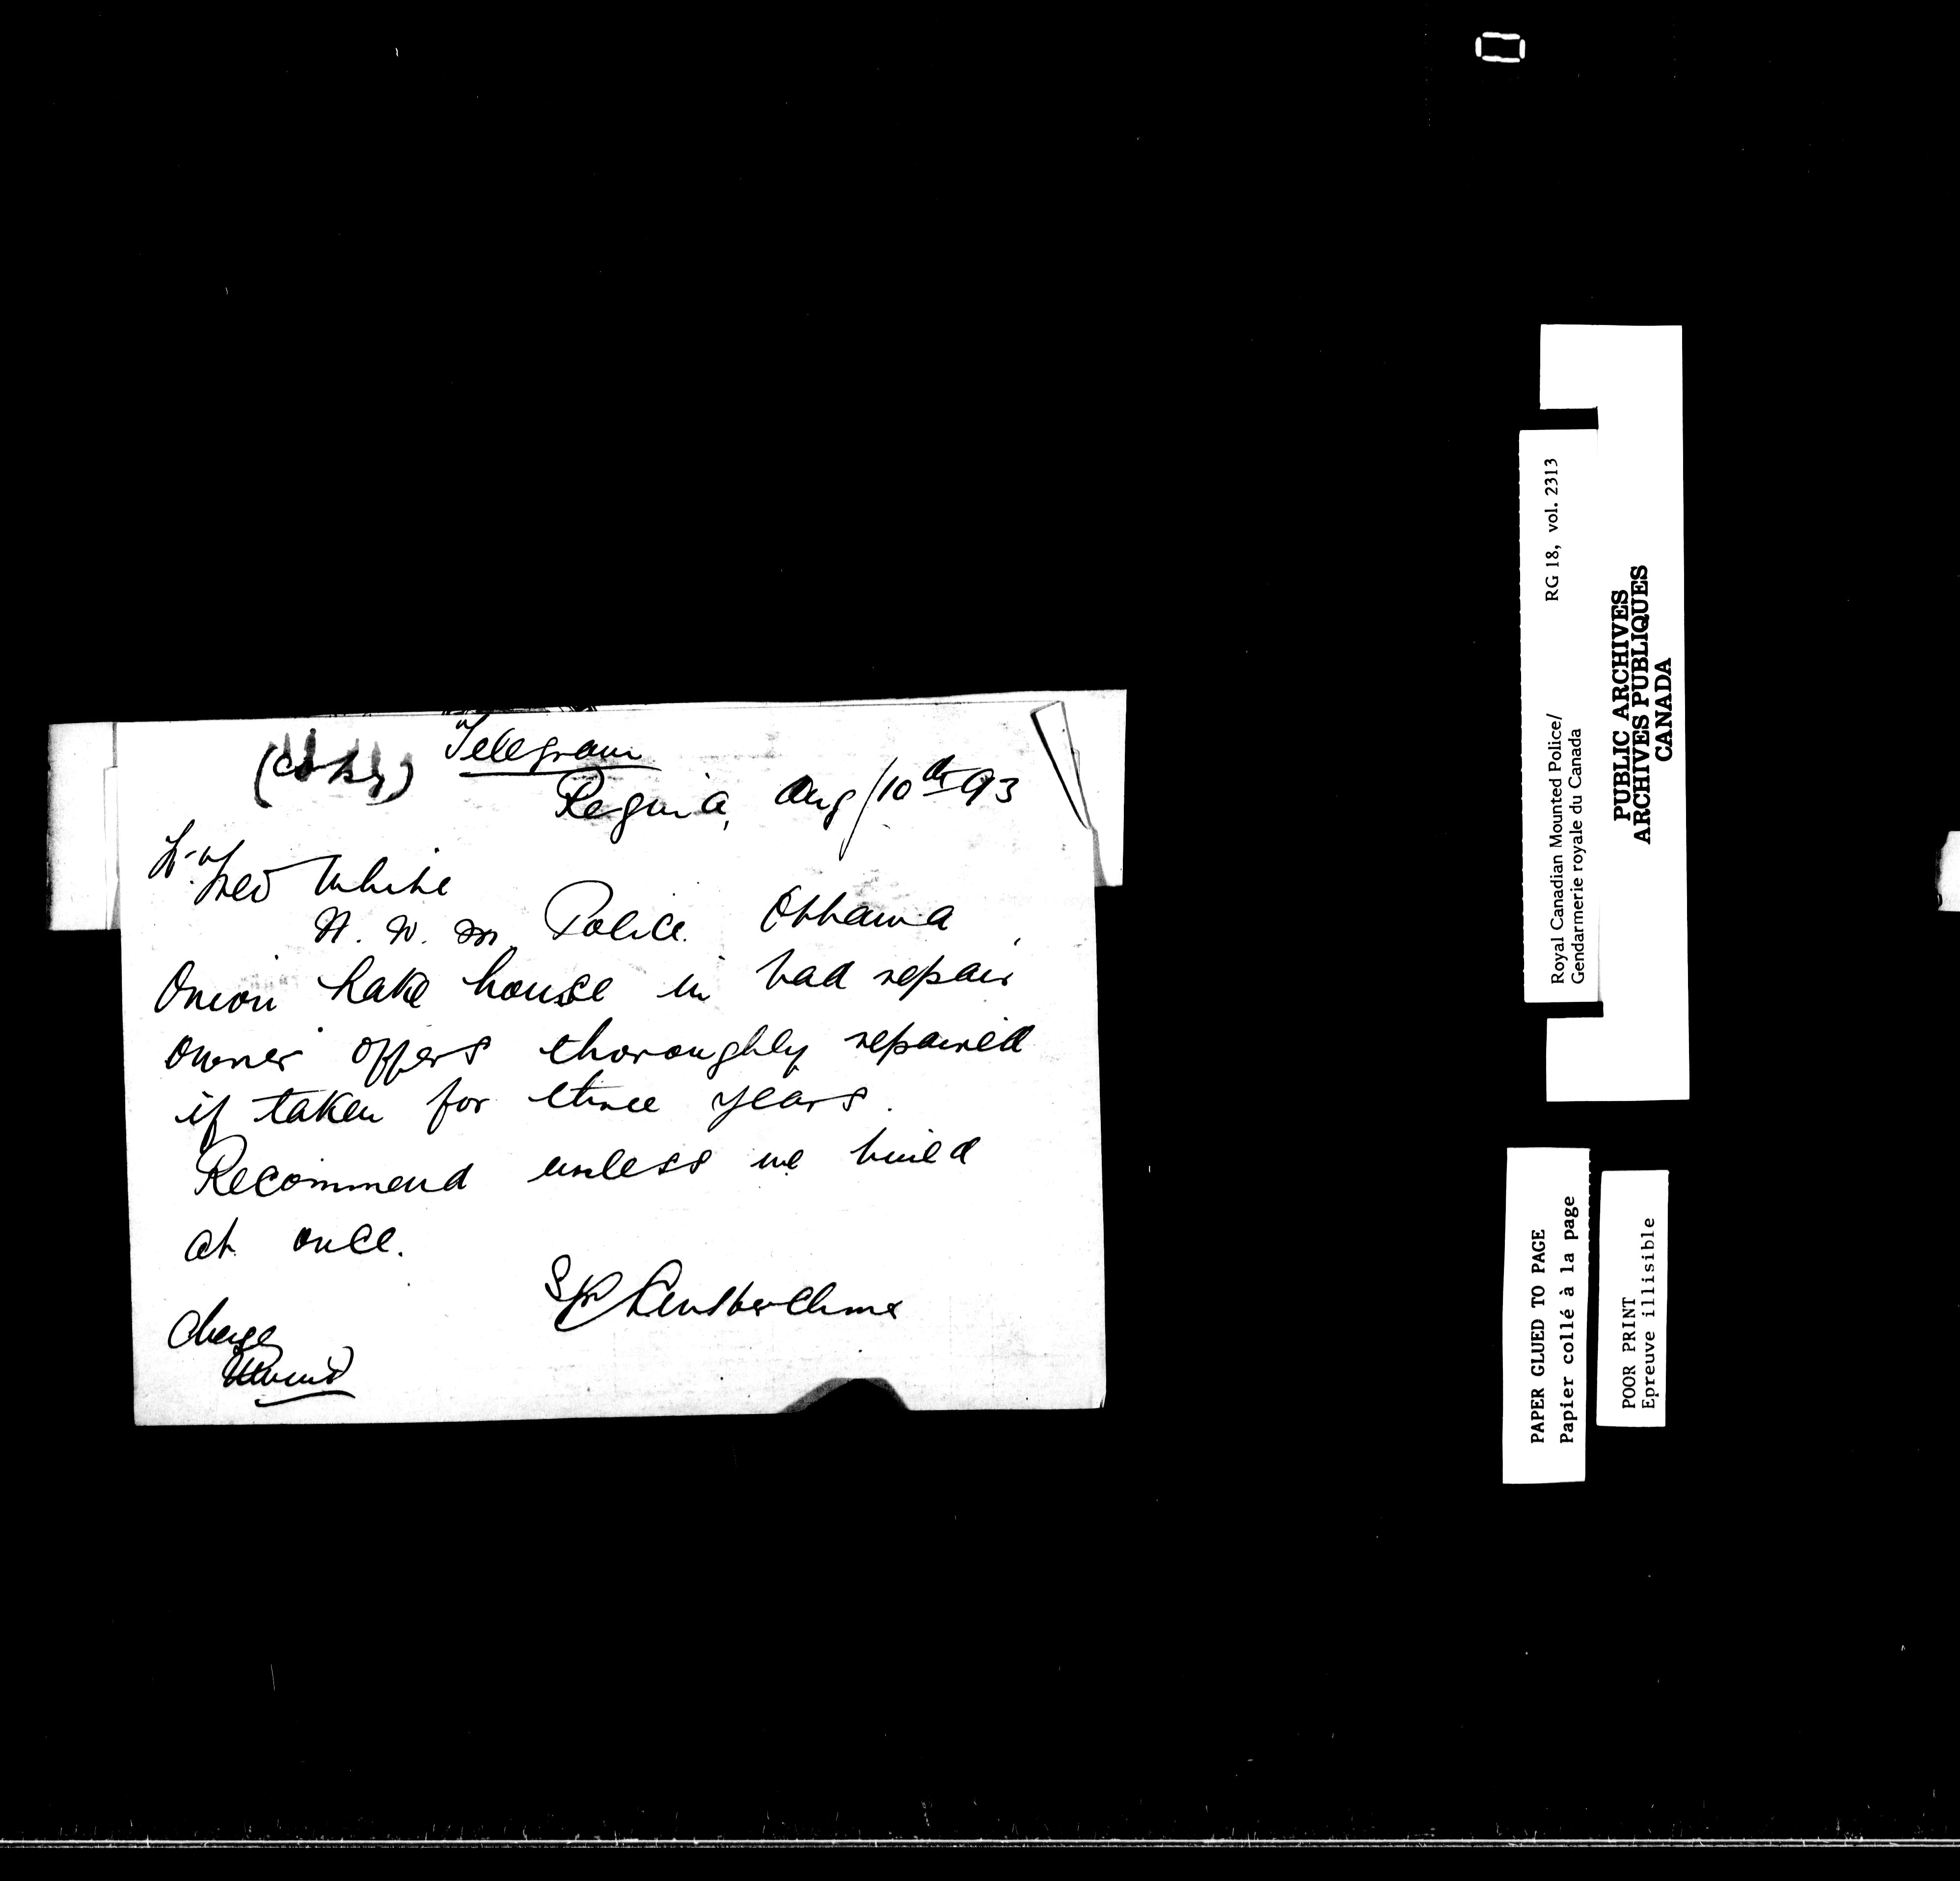 Telegram
(Copy)
Regina, Aug/10th 93
Fred White
N. W. M. Police. Ottawa
Onion Lake house in bad repair
owner offers thoroughly repaired
if taken for three years.
Recommend unless we build
at once.
Charge
RG 18, vol. 2313
Royal Canadian Mounted Police/
Gendarmerie royale du Canada
PUBLIC ARCHIVES
ARCHIVES PUBLIQUES
CANADA
PAPER GLUED TO PAGE
Papier collé à la page
POOR PRINT
Epreuve illisible